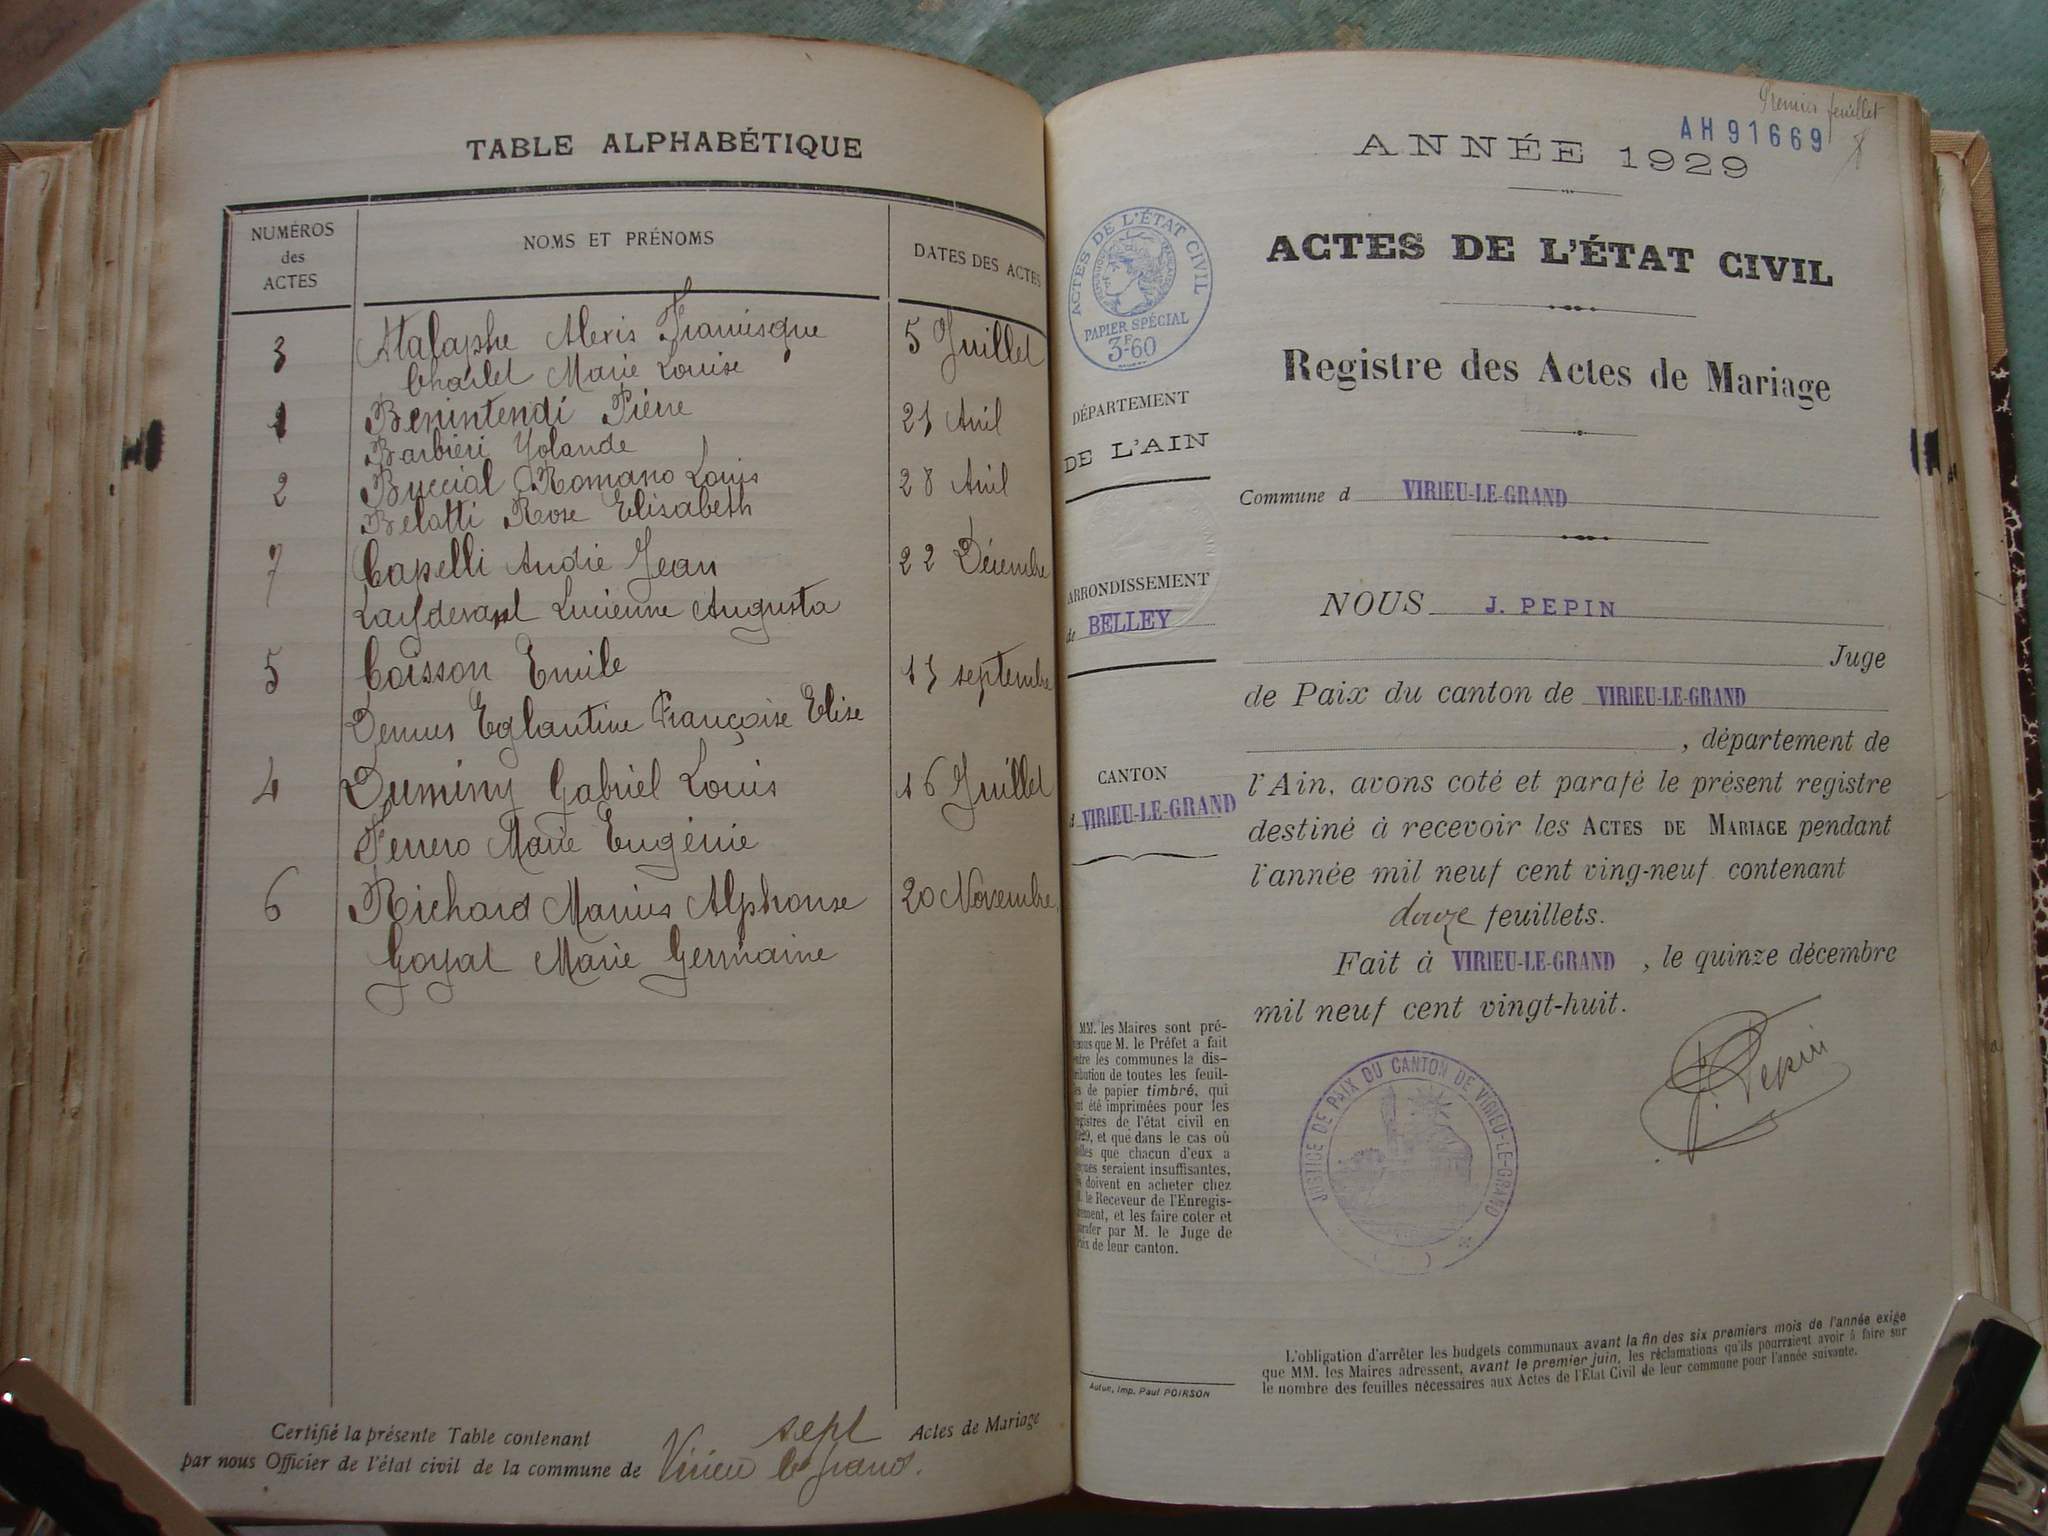 TABLE ALPHABÉTIQUE
NUMÉROS
des
ACTES
NOMS ET PRÉNOMS
DATES DES ACTES
3 Alexis Francisque 5 Juillet
Charlet Marie Louise
1 Benintendi Pierre 21 Avril
Barbieri Yolande
2 Buccial Romano Louis 28 Avril
Belotti Rose Elisabeth
7 Capelli André Jean 22 Décembre
Lucienne Augusta
5 Coisson Emile septembre
Eglantine Françoise Elise
4 Duminy Gabriel Louis 16 Juillet
Ferrero Marie Eugénie
6 Richard Marius Alphonse 20 Novembre
Goyat Marie Germaine
Certifié la présente Table contenant sept Actes de Mariage
par nous Officier de l'état civil de la commune de Virieu le grand.
Premier feuillet
AH 91669
ANNÉE 1929
ACTES DE L'ÉTAT CIVIL
PAPIER SPÉCIAL
3F60
ACTES DE L'ÉTAT CIVIL
Registre des Actes de Mariage
DÉPARTEMENT
DE L'AIN
Commune d VIRIEU-LE-GRAND
ARRONDISSEMENT
de BELLEY
CANTON
d VIRIEU-LE-GRAND
NOUS J. PEPIN
Juge
de Paix du canton de VIRIEU-LE-GRAND
, département de
l'Ain, avons coté et parafé le présent registre
destiné à recevoir les ACTES DE MARIAGE pendant
l'année mil neuf cent ving-neuf contenant
douze feuillets.
Fait à VIRIEU-LE-GRAND , le quinze décembre
mil neuf cent vingt-huit.
J. Pepin
JUSTICE DE PAIX DU CANTON DE VIRIEU-LE-GRAND
MM. les Maires sont pré-
que M. le Préfet a fait
les communes la dis-
de toutes les feuil-
de papier timbré, qui
été imprimées pour les
de l'état civil en
et que dans le cas où
que chacun d'eux a
seraient insuffisantes,
doivent en acheter chez
le Receveur de l'Enregis-
et les faire coter et
par M. le Juge de
de leur canton.
Autun, Imp. Paul POIRSON
L'obligation d'arrêter les budgets communaux avant la fin des six premiers mois de l'année exige
que MM. les Maires adressent, avant le premier juin, les réclamations qu'ils pourraient avoir à faire sur
le nombre des feuilles nécessaires aux Actes de l'Etat Civil de leur commune pour l'année suivante.